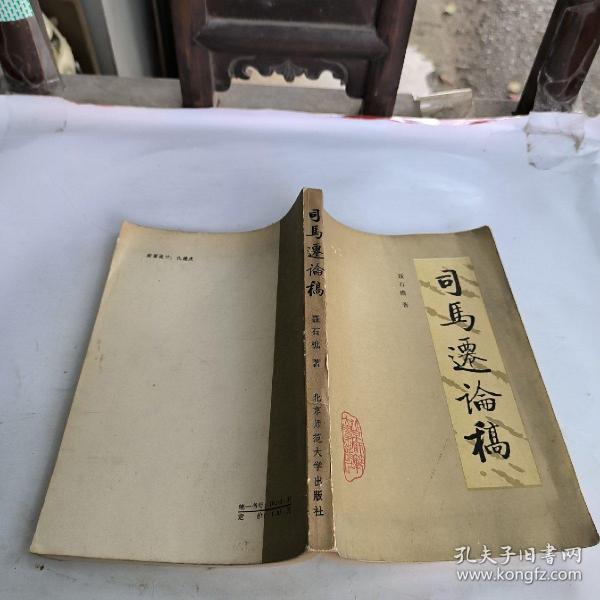 司馬遷論稿
聂石樵 著
司馬遷論稿
聂石樵 著
北京师范大学出版社
统一书号
定价
孔夫子旧书网
www.kongfz.com